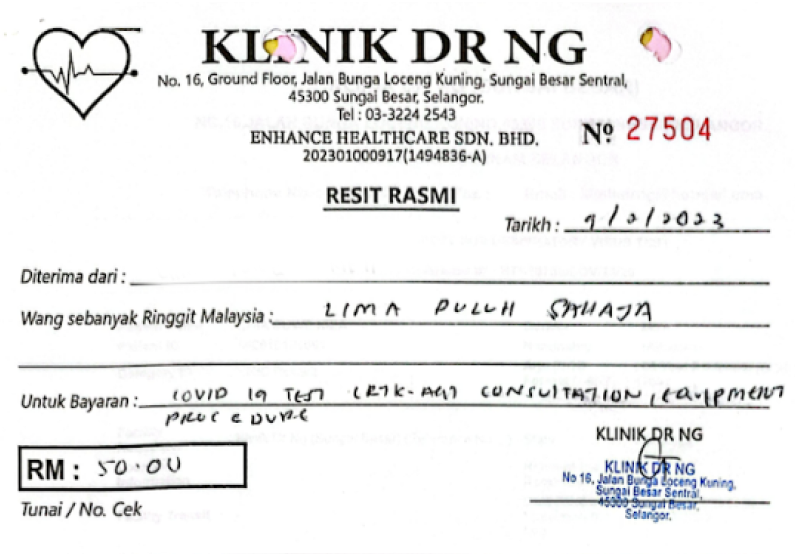 KLINIK DR NG
No. 16, Ground Floor, Jalan Bunga Loceng Kuning, Sungai Besar Sentral,
45300 Sungai Besar, Selangor.
Tel : 03-3224 2543
ENHANCE HEALTHCARE SDN. BHD.
202301000917(1494836-A)
Nº 27504
RESIT RASMI
Tarikh : 9/2/2023
Diterima dari :
Wang sebanyak Ringgit Malaysia : LIMA PULUH SAHAJA
Untuk Bayaran : COVID 19 TEST (RTK-AG) CONSULTATION, EQUIPMENT
PROCEDURE
KLINIK DR NG
RM : 50.00
KLINIK DR NG
No 16, Jalan Bunga Loceng Kuning,
Sungai Besar Sentral,
45300 Sungai Besar,
Selangor.
Tunai / No. Cek